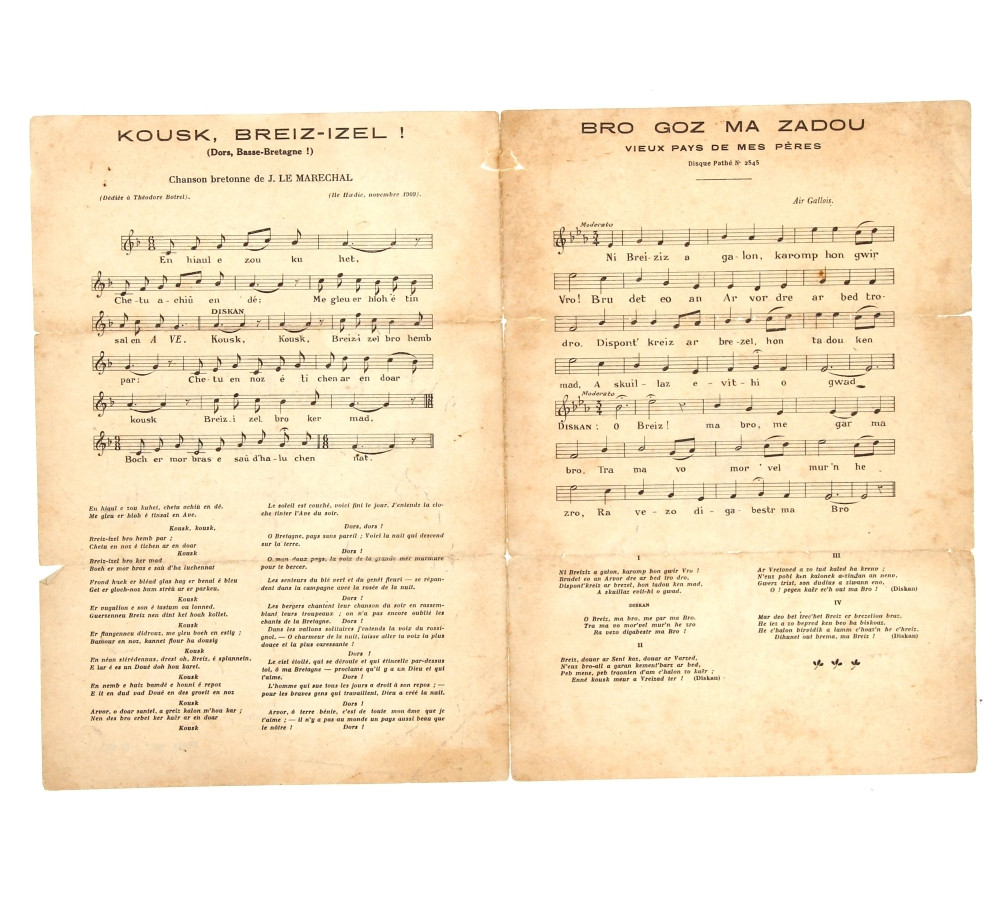 KOUSK, BREIZ-IZEL !
(Dors, Basse-Bretagne !)
Chanson bretonne de J. LE MARECHAL
(Dédiée à Théodore Botrel).
(Ile Hœdic, novembre 1909).
En hiaul e zou ku het,
Che-tu a-chiü en dé; Me gleu er hloh é tin
DISKAN
sal en A VE. Kousk, Kousk, Breiz-i zel bro hemb
par: Che-tu en noz é ti chen ar en doar
kousk Breiz-i zel bro ker mad.
Boch er mor bras e saü d'ha-lu chen nat.
En hiaul e zou kuhet, chetu achiü en dé.
Me gleu er hloh é tinsal en Ave.
Kousk, kousk,
Breiz-Izel bro hemb par ;
Chetu en noz é tichen ar en doar
Kousk
Breiz-izel bro ker mad
Boeh er mor bras e saü d'ha luchennat
Frond huek er bléad glas hag er benal é bleu
Get er glouh-noz hum streù ar er parkeu.
Kousk
Er vugulion e son é tastum ou lonned,
Guersenneu Breiz nen dint ket hoah kollet.
Kousk
Er flangenneu didrouz, me gleu boeh en estig ;
Hamour en noz, kannet flour ha dousig
Kousk
En néan stirédennus, drest oh, Breiz, é splannein,
E lar é es un Doué doh hou karet.
Kousk
En nemb e huiz bamdé e houni é repoz
E it en dud vad Doué en des groeit en noz
Kousk
Arvor, o doar santel, a greiz kalon m'hou kar ;
Nen des bro erbet ker kaër ar en doar
Kousk
Le soleil est couché, voici fini le jour. J'entends la clo-
che tinter l'Ave du soir.
Dors, dors !
O Bretagne, pays sans pareil ; Voici la nuit qui descend
sur la terre.
Dors !
O mon doux pays, la voix de la grande mer murmure
pour te bercer.
Les senteurs du blé vert et du genêt fleuri — se répan-
dent dans la campagne avec la rosée de la nuit.
Dors !
Les bergers chantent leur chanson du soir en rassem-
blant leurs troupeaux ; on n'a pas encore oublié les
chants de la Bretagne. Dors !
Dans les vallons solitaires j'entends la voix du rossi-
gnol. — O charmeur de la nuit, laisse aller ta voix la plus
douce et la plus caressante !
Dors !
Le ciel étoilé, qui se déroule et qui étincelle par-dessus
toi, ô ma Bretagne — proclame qu'il y a un Dieu et qui
t'aime. Dors !
L'homme qui sue tous les jours a droit à son repos ; —
pour les braves gens qui travaillent, Dieu a créé la nuit.
Dors !
Arvor, ô terre bénie, c'est de toute mon âme que je
t'aime ; — il n'y a pas au monde un pays aussi beau que
le nôtre ! Dors !
BRO GOZ MA ZADOU
VIEUX PAYS DE MES PÈRES
Disque Pathé N° 2545
Air Gallois.
Moderato
Ni Brei-ziz a ga-lon, karomp hon gwir
Vro! Bru det eo an Ar vor dre ar bed tro-
dro, Dispont' kreiz ar bre-zel, hon ta dou ken
mad, A skuil-laz e-vit-hi o gwad
Moderato
DISKAN : O Breiz! ma bro, me gar ma
bro, Tra ma vo mor 'vel mur 'n he
zro, Ra ve-zo di-ga-bestr ma Bro
I
Ni Breiziz a galon, karomp hon gwir Vro !
Brudet eo an Arvor dre ar bed tro dro,
Dispont'kreiz ar brezel, hon tadou ken mad,
A skuillaz evit-hi o gwad.
DISKAN
O Breiz, ma bro, me gar ma Bro,
Tra ma vo mor'vel mur'n he zro
Ra vezo digabestr ma Bro !
II
Breiz, douar ar Sent koz, douar ar Varzed,
N'eus bro-all a garan kement'barz ar bed,
Peb menez, peb traonien d'am c'halon zo kaër ;
Enné kousk meur a Vreizad ter ! (Diskan)
III
Ar Vretoned a zo tud kaled ha kreno ;
N'eus pobl ken kalonek a-zindan an nenv,
Gwerz trist, son dudius a ziwann eno,
O ! pegen kaër ec'h out ma Bro ! (Diskan)
IV
Mar deo bet trec'het Breiz er brezeliou braz,
He iez a zo bepred ken beo ha biskoaz,
He c'halon birvidik a lamm c'hoaz'n he c'hreiz,
Dihunet out brema, ma Breiz ! (Diskan)